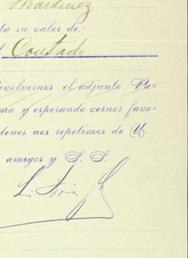 Martinez
da su valor de:
Contado
devolvernos el adjunto Pa-
ona y esperando vernos favo-
denes nos repetimos de U.
amigos y S. S.